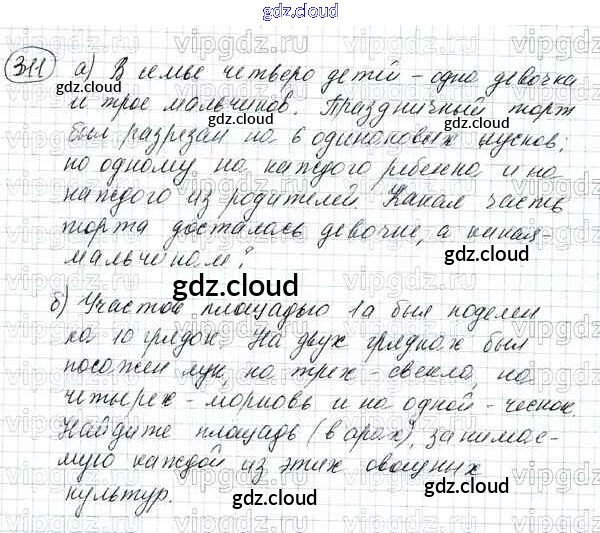 gdz.cloud
311 а) В семье четверо детей - одна девочка
и трое мальчиков. Праздничный торт
был разрезан на 6 одинаковых кусков:
по одному на каждого ребенка и на
каждого из родителей. Какая часть
торта досталась девочке, а какая -
мальчикам?
б) Участок площадью 1а был поделен
на 10 грядок. На двух грядках был
посажен лук, на трех - свекла, на
четырех - морковь и на одной - чеснок.
Найдите площадь (в арах), занимае-
мую каждой из этих овощных
культур.
gdz.cloud
gdz.cloud
gdz.cloud
gdz.cloud
gdz.cloud
gdz.cloud
gdz.cloud
gdz.cloud
gdz.cloud